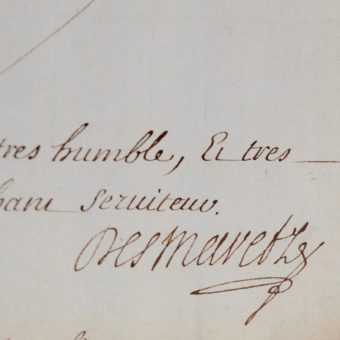 tres humble, Et tres
serviteur.
Desmaretz